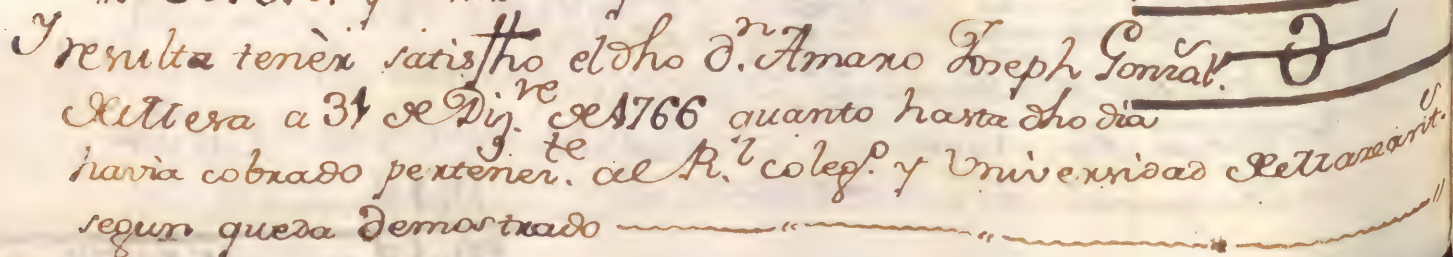 Y resulta tenèr satisfho el dho D.n Amaro Joseph Gonzal.s
de Mesa a 31 de Diz.re de 1766 quanto hasta dho dia
havia cobrado pertenez.te al R.l coleg.o y Universidad de Mareant.s
segun queda demostrado